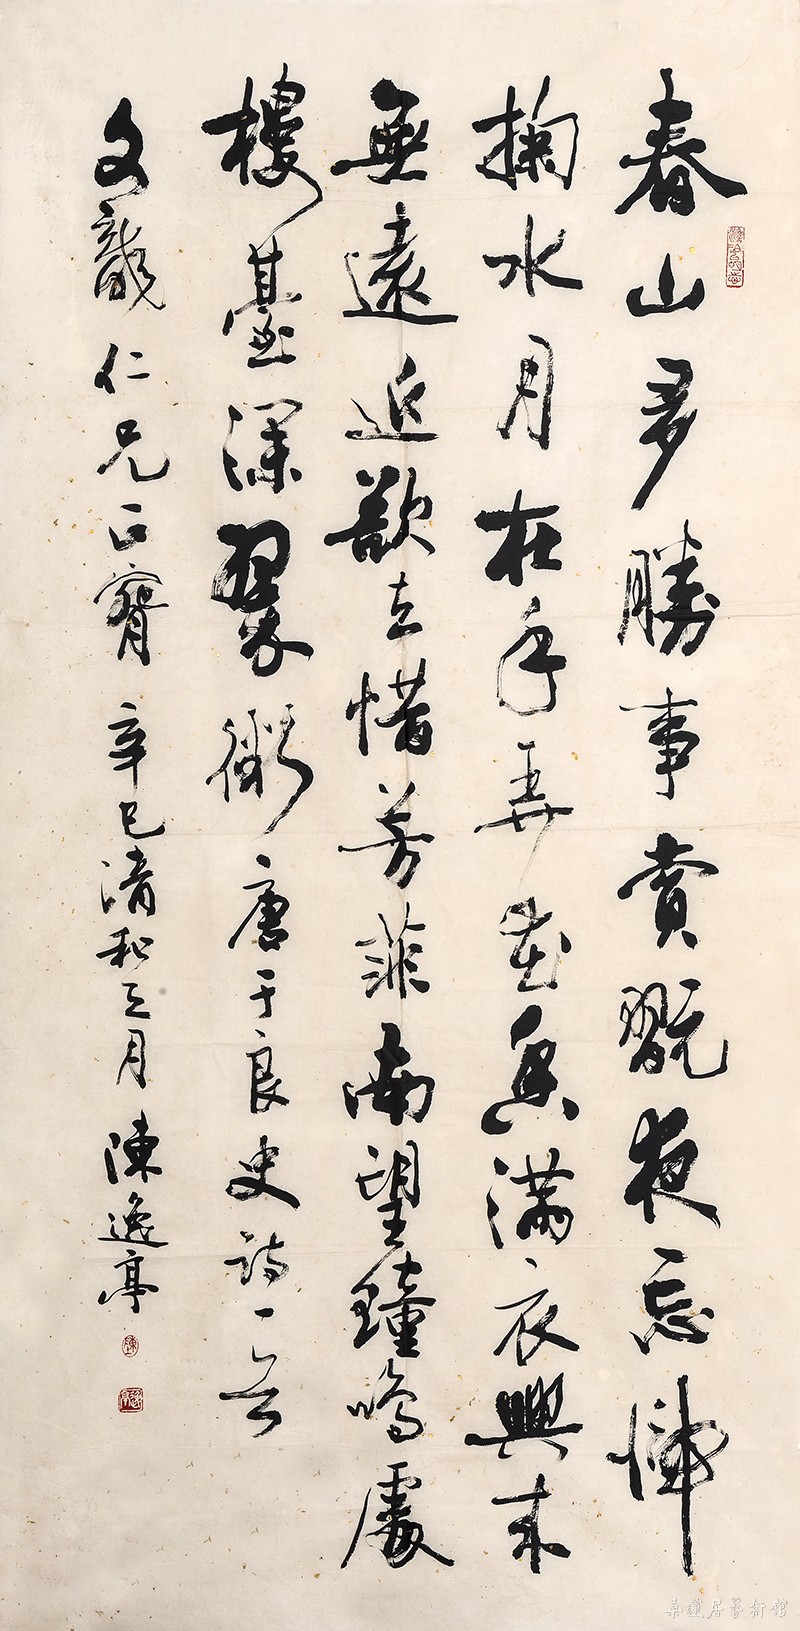 春山多勝事賞翫夜忘歸
掬水月在手弄花香滿衣興來
無遠近欲去惜芳菲南望鐘鳴處
樓臺深翠微 唐于良史詩一首
文龍仁兄正 辛巳清和之月 陳逸亭
居藝術館